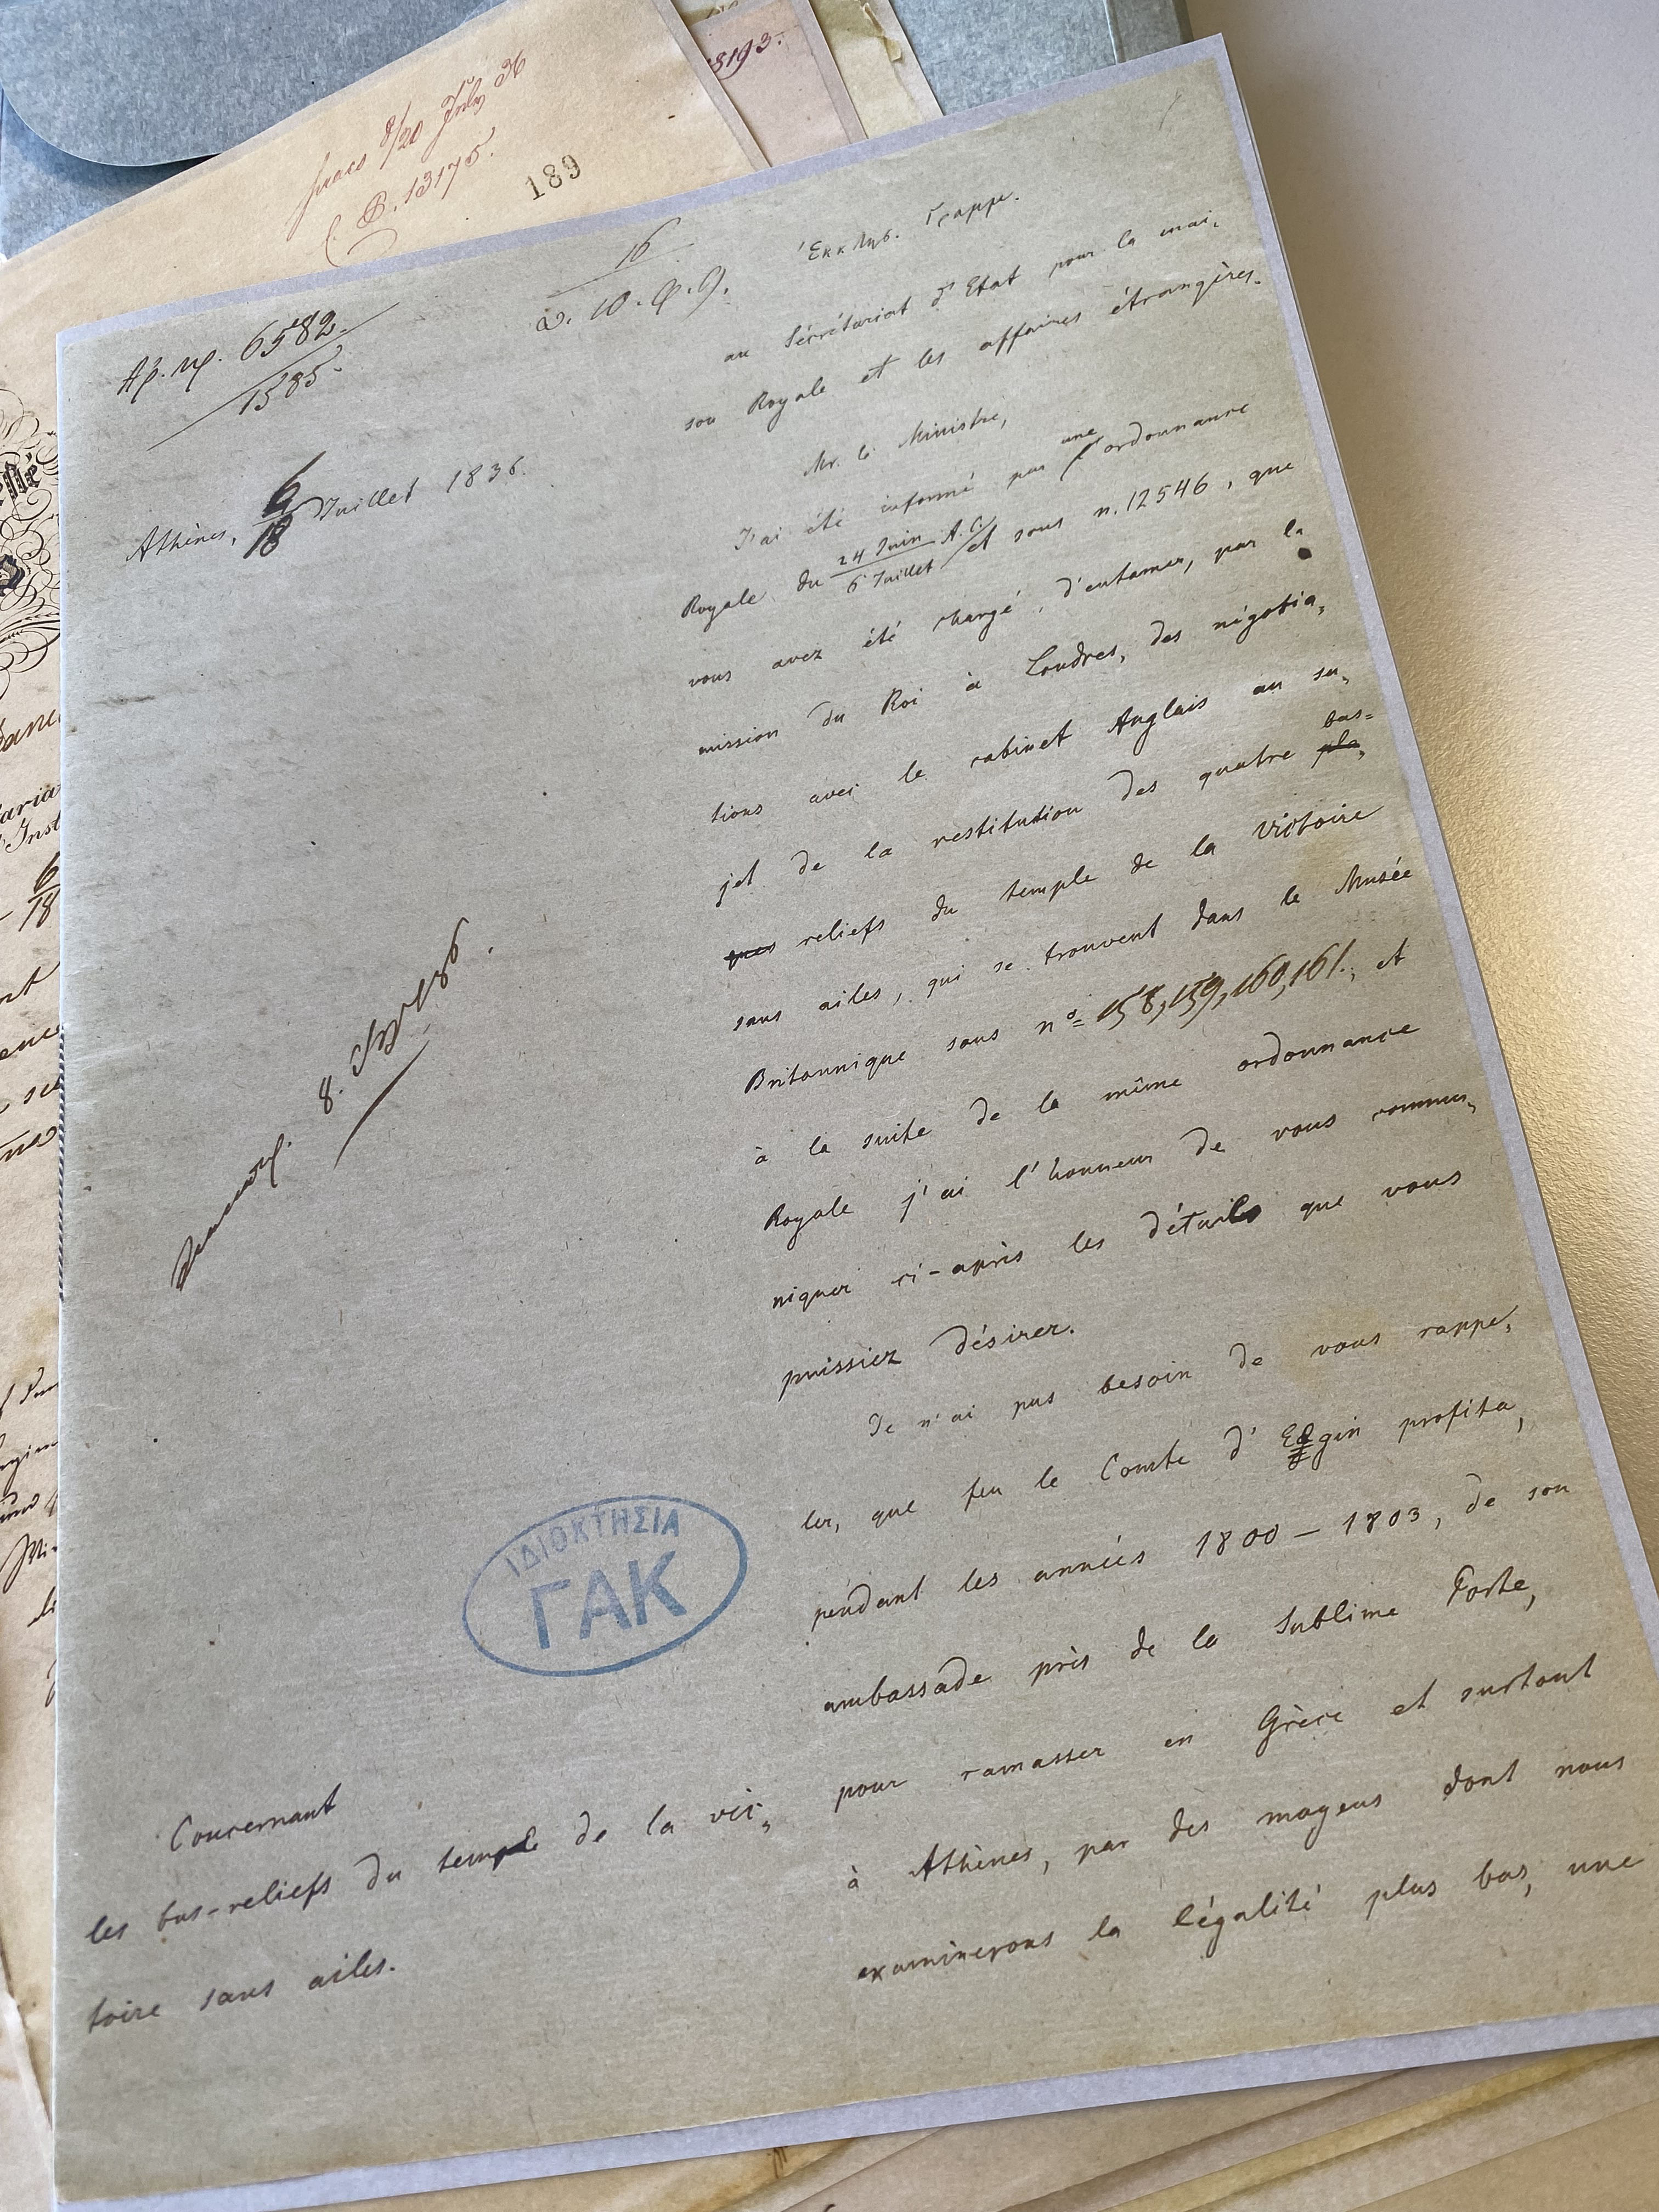 8193.
8/20 July
B. 13175.
189
Αρ. πρ. 6582.
1585.
16
Ἐκκλησ. Γραμμ.
au Sécrétariat d'Etat pour la mai,
son Royale et les affaires étrangères.
Athènes, 6/18 Juillet 1836.
Mr. le Ministre,
J'ai été informé par une ordonnance
Royale du 24 Juin / 6 Juillet A. C. et sous n. 12546, que
vous avez été chargé, d'entamer, par la
mission du Roi à Londres, des négotia,
tions avec le cabinet Anglais au su,
jet de la restitution des quatre pla, bas=
ques reliefs du temple de la Victoire
sans ailes, qui se trouvent dans le Musée
Britannique sous nº 158, 159, 160, 161., et
à la suite de la même ordonnance
Royale j'ai l'honneur de vous commu,
niquer ci-après les détails que vous
puissiez désirer.
Je n'ai pas besoin de vous rappe,
ler, que feu le Comte d'Elgin profita,
pendant les années 1800 – 1803, de son
ambassade près de la Sublime Porte,
pour ramasser en Grèce et surtout
à Athènes, par des moyens dont nous
examinerons la légalité plus bas, une
8.
ΙΔΙΟΚΤΗΣΙΑ
ΓΑΚ
Concernant
les bas-reliefs du temple de la vic,
toire sans ailes.
6/18